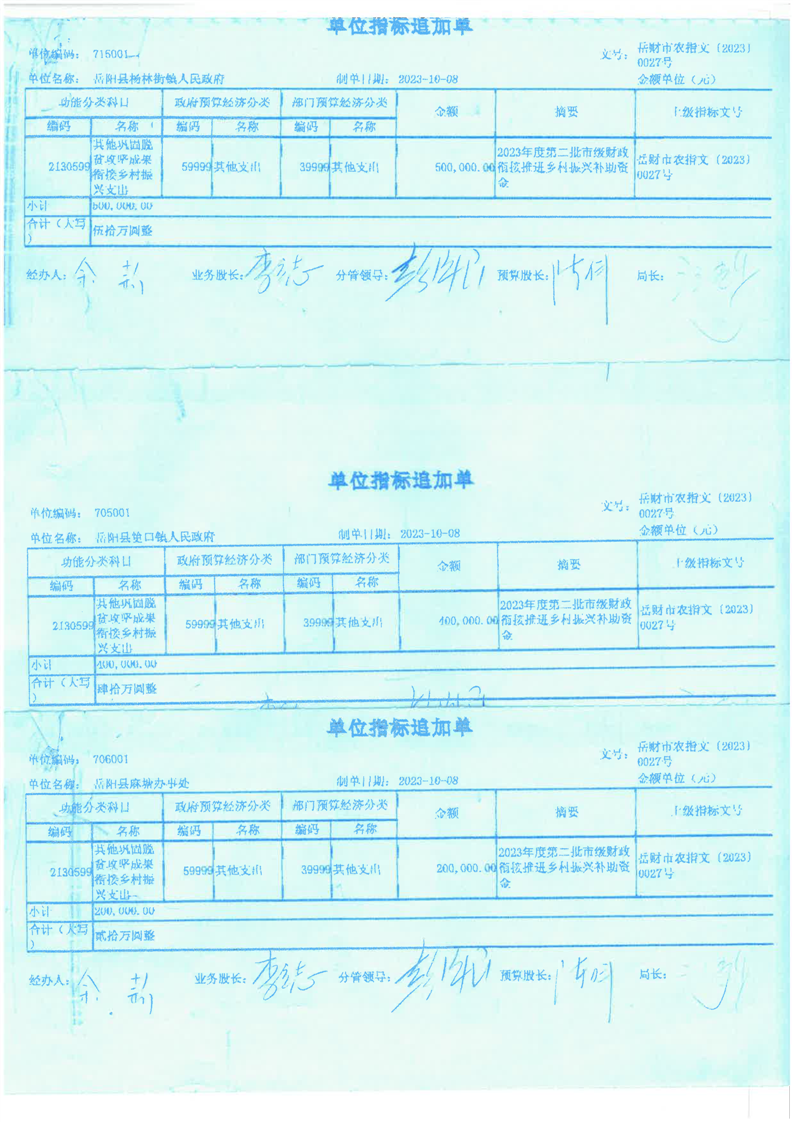 单位指标追加单
单位编码： 715001 文号： 岳财市农指文（2023）
0027号
单位名称： 岳阳县杨林街镇人民政府 制单日期： 2023-10-08 金额单位（元）
功能分类科目 政府预算经济分类 部门预算经济分类 金额 摘要 上级指标文号
编码 名称 编码 名称 编码 名称
2130599 其他巩固脱贫攻坚成果衔接乡村振兴支出 59999 其他支出 39999 其他支出 500,000.00 2023年度第二批市级财政衔接推进乡村振兴补助资金 岳财市农指文（2023）0027号
小计 500,000.00
合计（大写） 伍拾万圆整
经办人： 业务股长： 分管领导： 预算股长： 局长：
单位指标追加单
单位编码： 705001 文号： 岳财市农指文（2023）
0027号
单位名称： 岳阳县筻口镇人民政府 制单日期： 2023-10-08 金额单位（元）
功能分类科目 政府预算经济分类 部门预算经济分类 金额 摘要 上级指标文号
编码 名称 编码 名称 编码 名称
2130599 其他巩固脱贫攻坚成果衔接乡村振兴支出 59999 其他支出 39999 其他支出 400,000.00 2023年度第二批市级财政衔接推进乡村振兴补助资金 岳财市农指文（2023）0027号
小计 400,000.00
合计（大写） 肆拾万圆整
单位指标追加单
单位编码： 706001 文号： 岳财市农指文（2023）
0027号
单位名称： 岳阳县麻塘办事处 制单日期： 2023-10-08 金额单位（元）
功能分类科目 政府预算经济分类 部门预算经济分类 金额 摘要 上级指标文号
编码 名称 编码 名称 编码 名称
2130599 其他巩固脱贫攻坚成果衔接乡村振兴支出 59999 其他支出 39999 其他支出 200,000.00 2023年度第二批市级财政衔接推进乡村振兴补助资金 岳财市农指文（2023）0027号
小计 200,000.00
合计（大写） 贰拾万圆整
经办人： 业务股长： 分管领导： 预算股长： 局长：